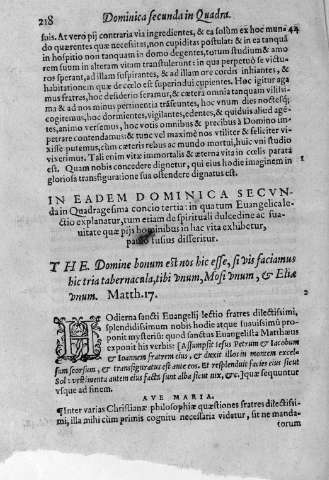 218 Dominica secunda in Quadra.
suis. At vero pij contraria via ingredientes, & ea solum ex hoc mun- 44
do quærentes quæ necessitas, non cupiditas postulat: & in ea tanquã
in hospitio non tanquam in domo degentes, totum studium & amo
rem suum in alteram vitam transtulerunt: in qua perpetuò se victu-
ros sperant, ad illam suspirantes, & ad illam ore cordis inhiantes, &
habitationem quæ de cœlo est superindui cupientes. Hoc igitur ago
mus fratres, hoc desiderio feramur, & cæteris omnia tanquam vilissi-
ma & ad nos minus pertinentia trãseuntes, hoc vnum dies noctesq;
cogitemus, hoc dormientes, vigilantes, edentes, & quiduis aliud agẽ-
tes, animo versemus, hoc votis omnibus & precibus à Domino im-
petrare contendamus: & tunc vel maximè nos vtiliter & feliciter vi-
xisse putemus, cùm cæteris rebus ac mundo mortui, huic vni studio
vixerimus. Tali enim vitæ immortalis & æterna vita in cœlis parata
est. Quam nobis concedere dignetur, qui eius hodie imaginem in
gloriosa transfiguratione sua ostendere dignatus est.
IN EADEM DOMINICA SECVN-
da in Quadragesima concio tertia: in qua tum Euangelica le-
ctio explanatur, tum etiam de spirituali dulcedine ac sua-
uitate quæ pijs hominibus in hac vita exhibetur,
paulo fusius disseritur.
THE. Domine bonum est nos hic esse, si vis faciamus
hic tria tabernacula, tibi vnum, Mosi vnum, & Eliæ
vnum. Matth. 17.
HOdierna sancti Euangelij lectio fratres dilectissimi,
splendidissimum nobis hodie atque suauissimũ pro
ponit mysteriũ: quod sanctus Euangelista Matthæus
exponit his verbis: Assumpsit Iesus Petrum & Iacobum
& Ioannem fratrem eius, & duxit illos in montem excel
sum seorsum, & transfiguratus est ante eos. Et resplenduit facies eius sicut
Sol: vestimenta autem eius facta sunt alba sicut nix, &c. Iquæ sequuntur
vsque ad finem.
AVE MARIA.
¶Inter varias Christianæ philosophiæ quæstiones fratres dilectissi-
mi, illa mihi cùm primis cognitu necessaria videtur, sit ne manda-
torum